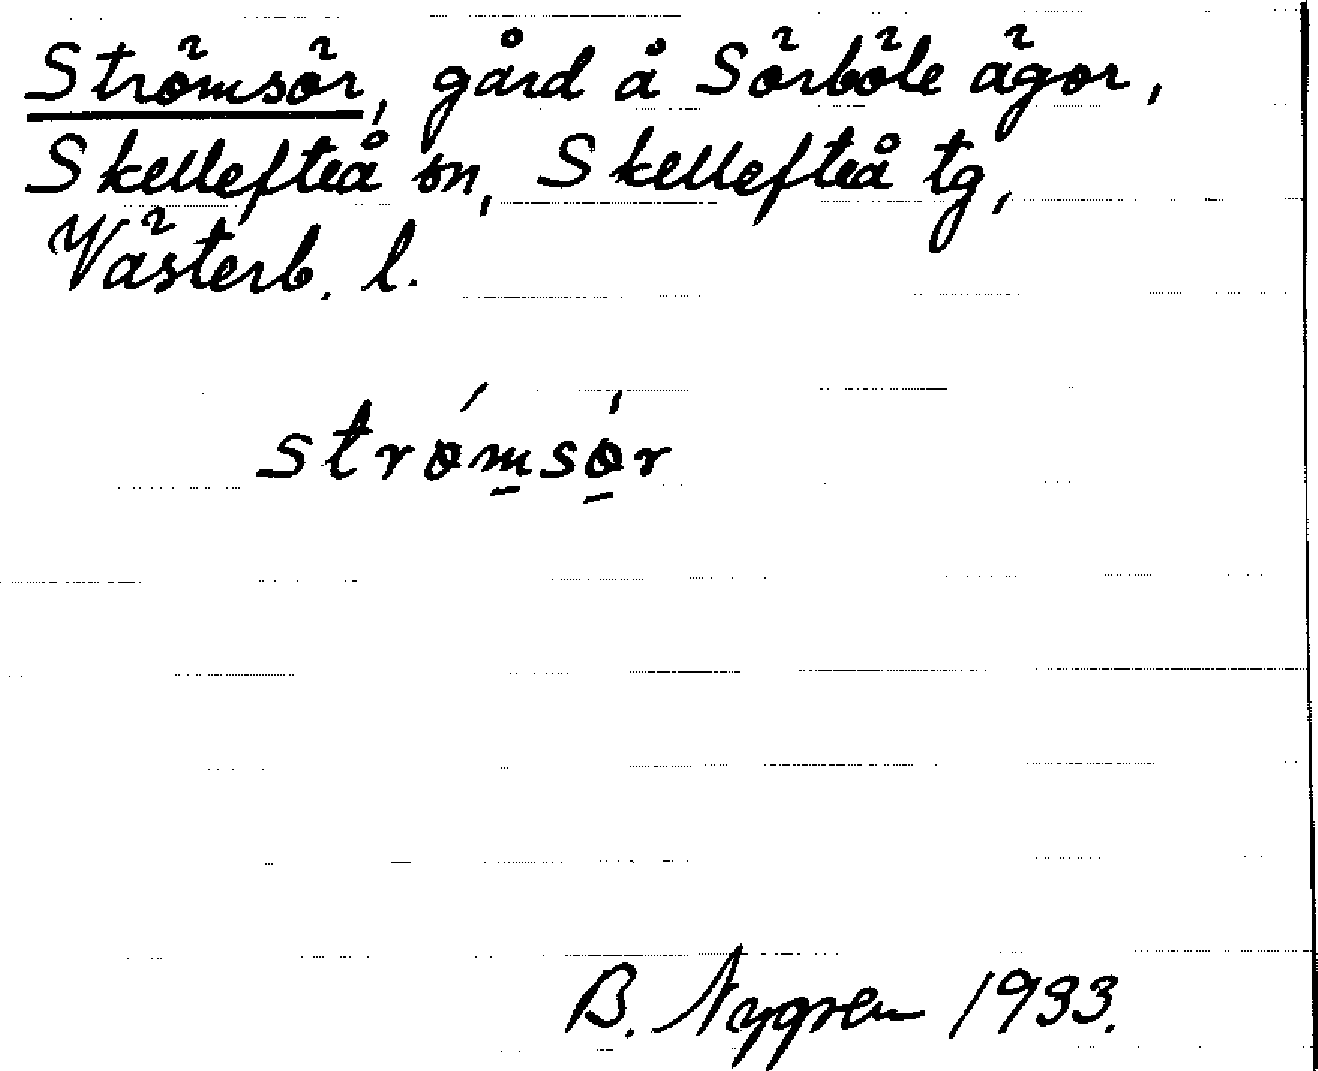 Strömsör, gård å Sörböle ägor,
Skellefteå sn, Skellefteå tg,
Västerb. l.
strø̀msø̀r
B. Nygren 1933.